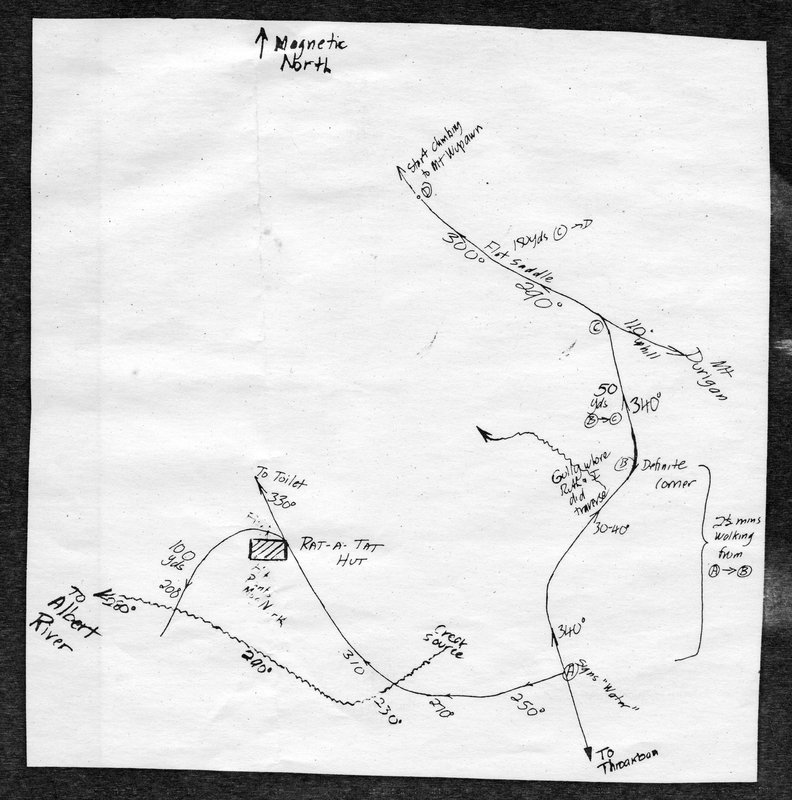 Magnetic
North
Start climbing
to Mt Wupawn
D
180yds C → D
300°
Flat Saddle
290°
C
110°
uphill
Mt
Durigan
50
yds
B → C
340°
B
Definite
corner
Gully where
Ruth & I
did
traverse
30-40°
2½ mins
walking
from
A → B
To Toilet
330°
RAT-A-TAT
HUT
100
yds
208
To
Albert
River
280°
290°
310
Creek
source
230°
270°
250°
340°
A
signs "Water"
To
Throakban